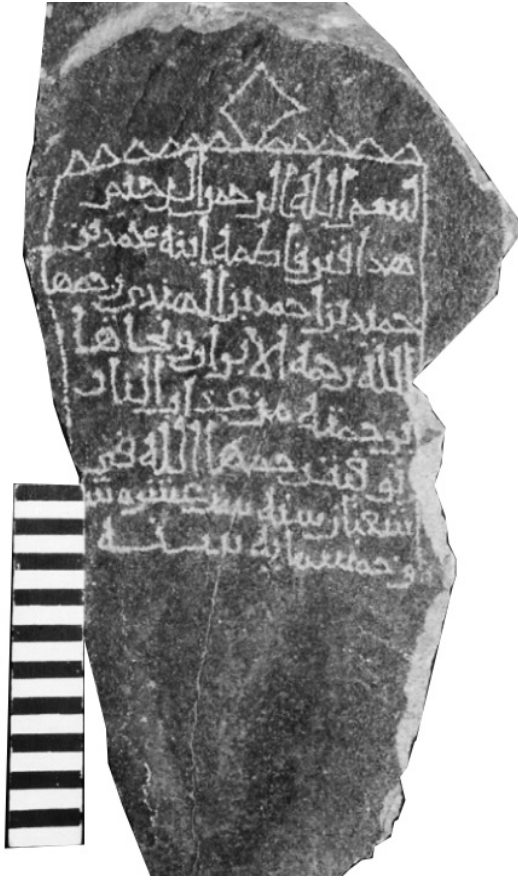 بسم الله الرحمن الرحيم
هذا قبر فاطمه ابنه محمد بن
حميد بن احمد بن الهندي رحمها
الله رحمه الابرار ونجاها
برحمته من عذاب النار
توفيت رحمها الله في
شعبان سنه عشر
وخمسمايه سنه